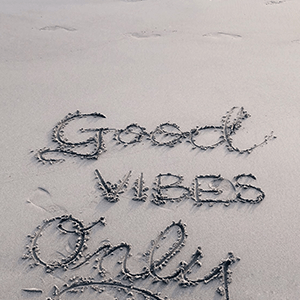 Good
VIBES
Only